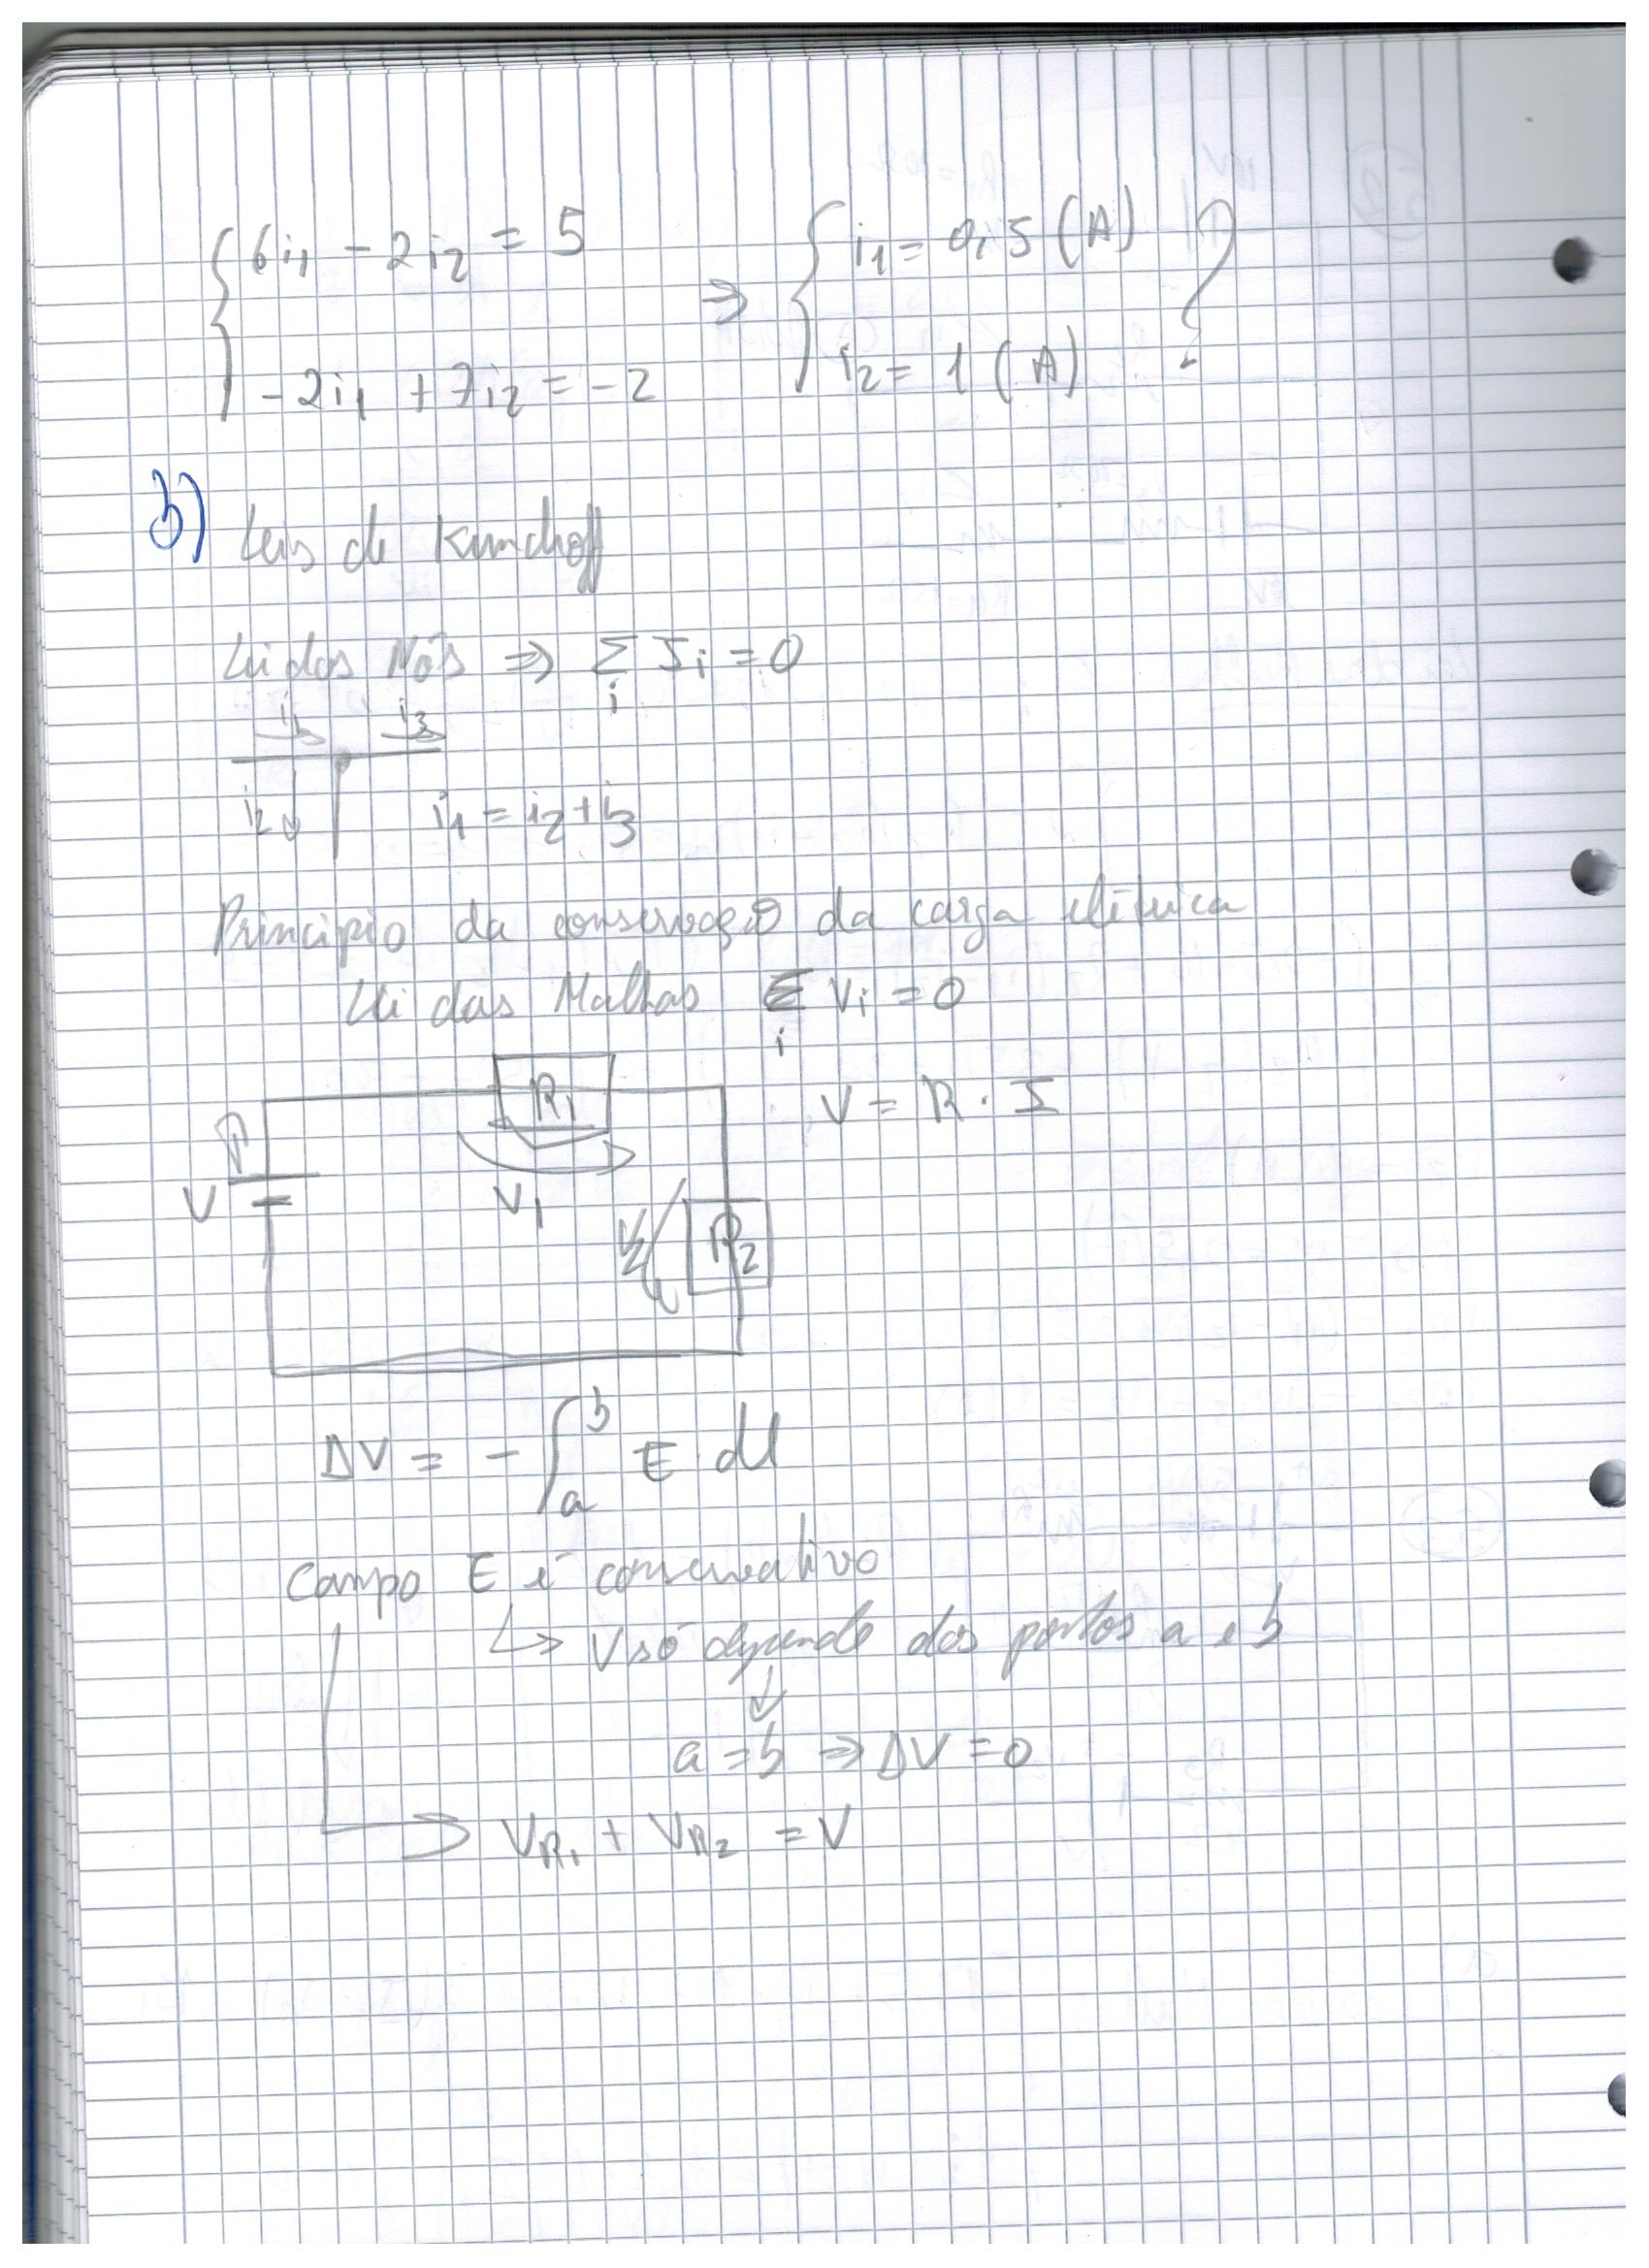 6i1 - 2i2 = 5 ⇒ i1 = 0,5 (A) ?
-2i1 + 7i2 = -2 i2 = 1 (A)
b) Leis de Kirchoff
Lei dos Nós ⇒ Σ Ii = 0
i
i1 i3
i2 i1 = i2 + i3
Principio da conservação da carga elétrica
Lei das Malhas Σ Vi = 0
i
R1 V = R . I
V V1
V2 R2
ΔV = - ∫ab E . dl
Campo E é conservativo
↳ V só depende dos pontos a e b
↓
a = b ⇒ ΔV = 0
VR1 + VR2 = V